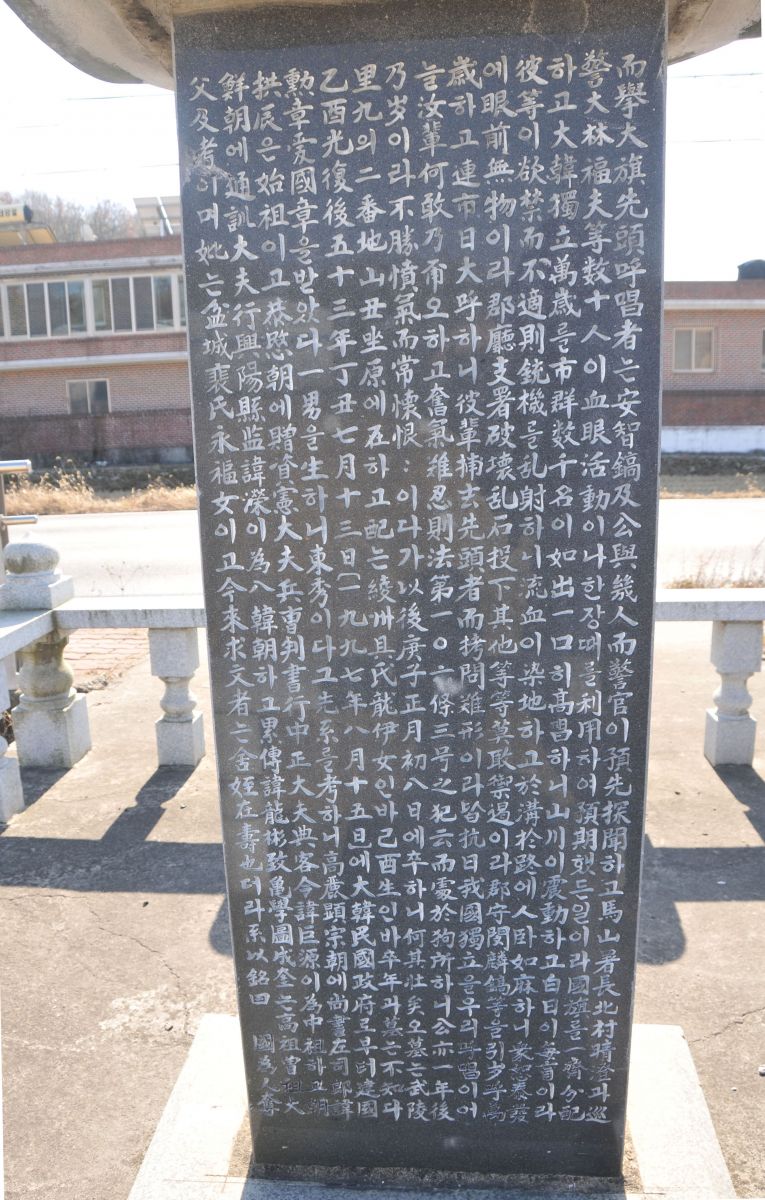 而擧大旗先頭呼唱者는安智鎬及公與幾人而警官이預先探聞하고馬山署長北村晴登과巡
警大林福夫等数十人이血眼活動이나한장때를利用하여預期했든일이라國旗를一齊分配
하고大韓獨立萬歲를市群数千名이如出一口히高唱하니山川이震動하고白日이無育이라
彼等이欲禁而不適則銃機를乱射하니流血이染地하고於溝於路에人臥如麻하니衆怒暴發
에眼前無物이라郡廳支署破壊乱石投下其他等等莫敢禦遏이라郡守閔麟鎬等을引出呼萬
歲하고連市日大呼하니彼輩捕去先頭者而拷問難形이라皆抗日我國獨立을우리呼唱이어
늘汝輩何敢乃甭오하고奮氣難忍則法第一0六條三号之犯云而處於狗所하니公亦一年後
乃岁이라不勝憤氣而常懷恨이다가以後庚子正月初八日에卒하니何其壮矣오墓는武陵
里九의二番地山丑坐原에在하고配는綾州具氏龍伊女인바己酉生인바卒年과墓는不知다
乙酉光復後五十三年丁丑七月十三日(一九九七年八月十五日)에大韓民國政府로부터建國
勳章愛國章을받았다一男을生하니東秀이다그先系를考하니高麗顯宗朝에尚書左司郞諱
拱辰은始祖이고恭愍朝에贈資憲大夫兵曹判書行中正大夫典客令諱巨源이為中祖하고朝
鮮朝에通訓大夫行興陽縣监諱濚이為八韓朝하고累傳諱龍彬致亀學圖成奎는高祖曾祖大
父及考하며妣는盆城裵氏永福女이고今来求文者는舍姪在壽也더라系以銘曰 國為人奪